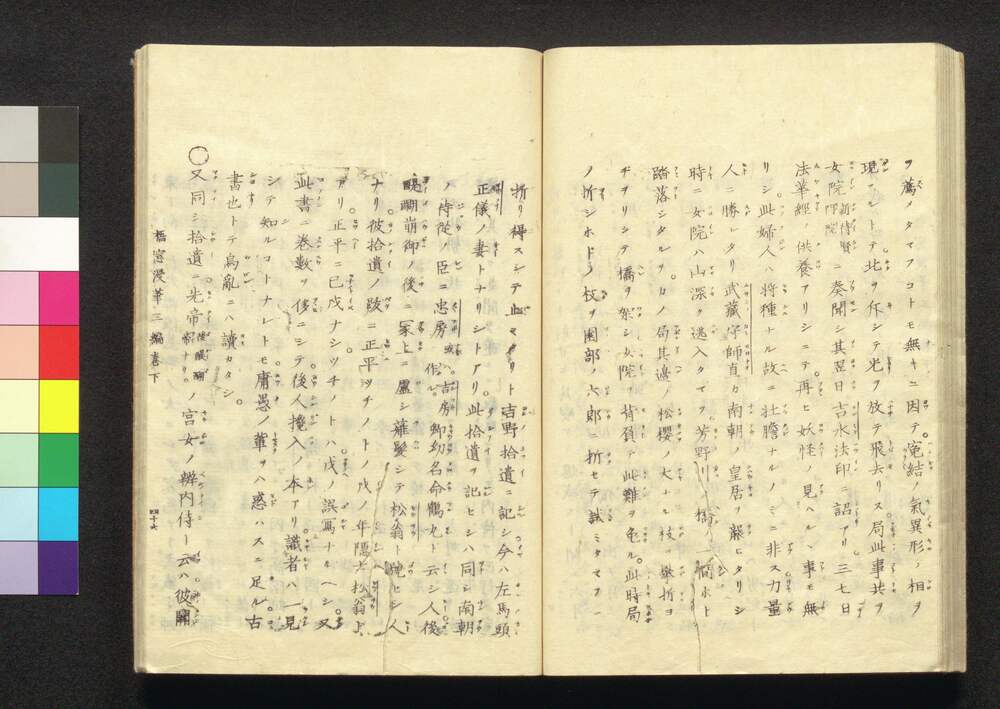 ヲ薦ノタマフコトモ無キニ因テ寃結ノ氣異形ノ相ヲ
現ハシトテ北ヲ斥シテ光ヲ放テ飛去リヌ局此事共ヲ
女院新待賢門院ニ奏聞シ其翌日吉水法印ニ詔アリ三七日
法華經ノ供養アリシニテ再ヒ妖怪ノ見ヘル事モ無
リシ此婦人ハ將種ナル故ニ壮膽ナルノミニ非ス力量
人ニ勝レタリ武藏守師直カ南朝ノ皇居ヲ襲ヒタリシ
時ニ女院ハ山深ク逃入タマフ芳野川ノ橋ノ一間ホト
踏落シタルヲカノ局其邊ノ松櫻ノ大ナル枝ヲ攀折ヨ
チヲリシテ橋ヲ架シ女院ヲ背負テ此難ヲ免ル此時局
ノ折シホドノ枝ヲ園部ノ六郎ニ折セテ試ミタマフニ
折リ得スシテ止マタリト吉野拾遺ニ記シ今ハ左馬頭
正儀ノ妻トナリシトアリ此拾遺ヲ記ヒシハ同シ南朝
ノ侍從ノ臣ニ忠房或ハ吉房作ル幼名命鶴丸ト云シ人後
醍醐崩御ノ後ニ冢上ニ廬シ薙髪シテ松翁ト號ヒシ人
ナリ彼拾遺ノ跋ニ正平ツチノトノ戊ノ年隱士松翁ト
アリ正平ニ己戊ナシツチノトハ戊ノ誤寫ナルヘシ又
此書ニ巻數ヲ侈ニシテ後人攙入ノ本アリ識者ハ一見
シテ知ルコトナレトモ庸愚ノ輩ヲハ惑ハスニ足ル古
書也トテ烏亂ニハ讀カタシ
○又同シ拾遺ニ先帝後醍醐帝ナリノ宮女ノ辨内侍ト云ハ彼
梧窓漫筆三編巻下
四十七